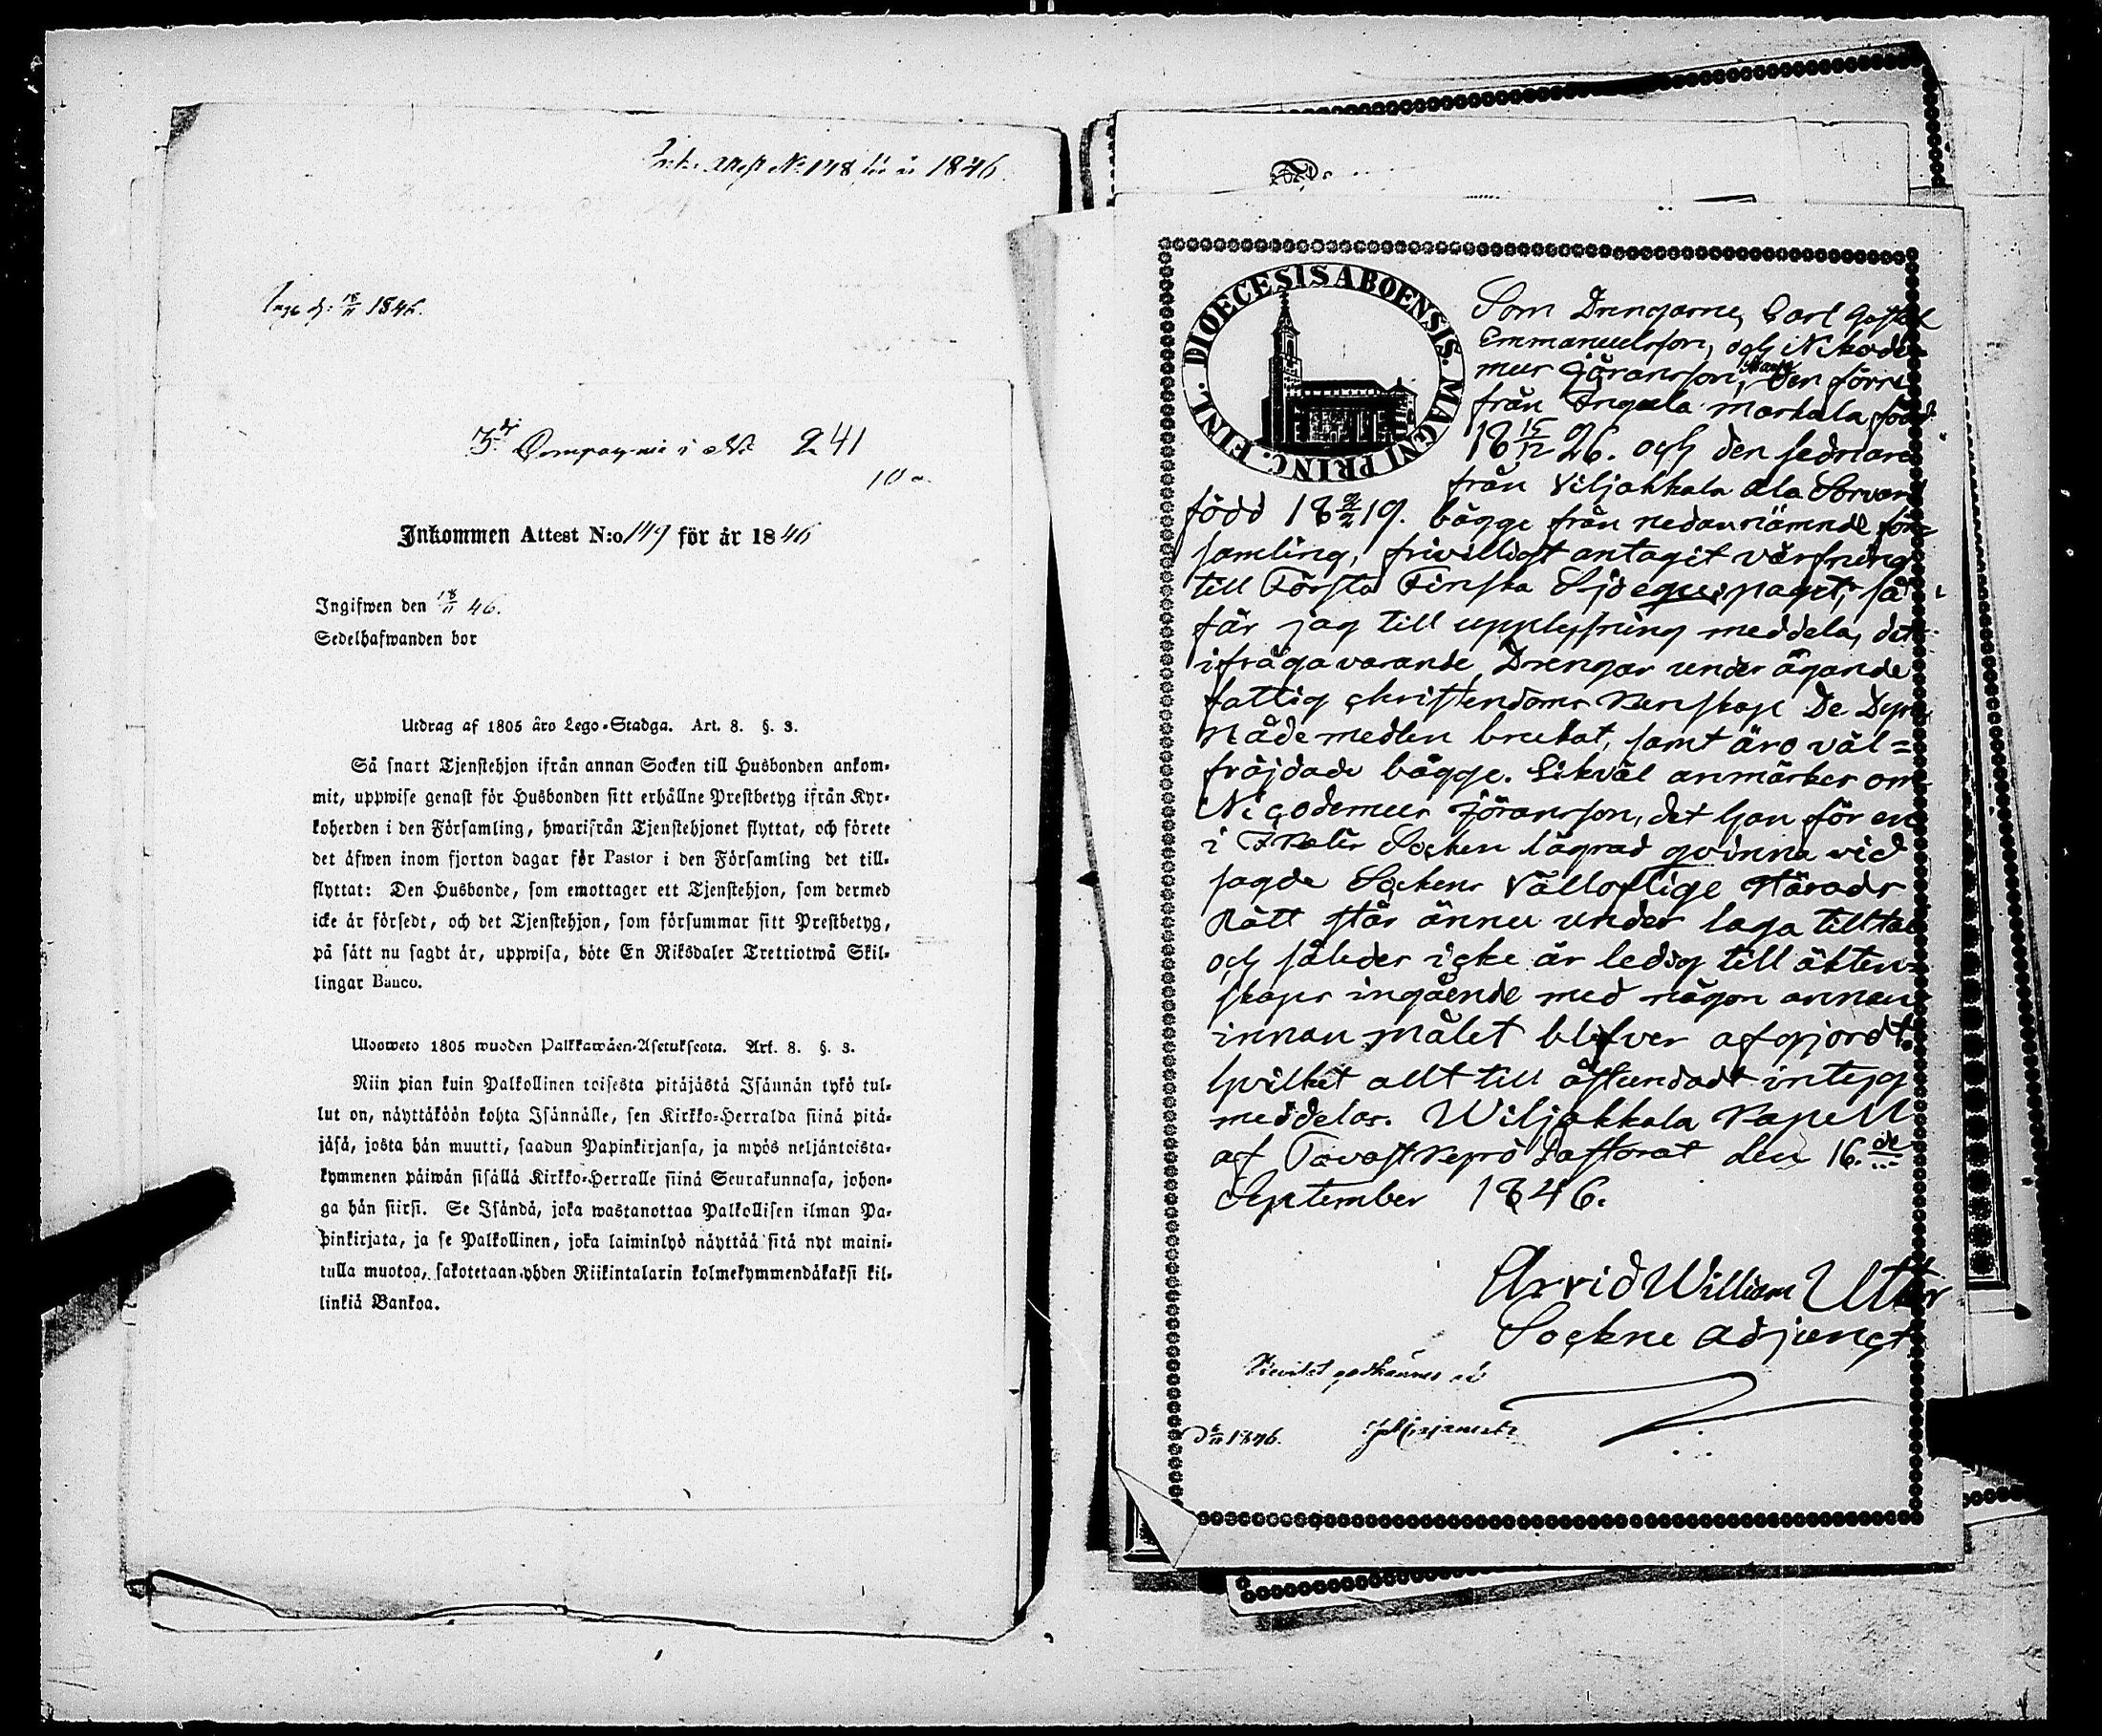 Ink. Attest No 148 för år 1846.
Ings d: 18/11 1846.
3dje Compagnie i No 241
10
Inkommen Attest N:o 149 för år 1846
Ingifwen den 18/11 46.
Sedelhafwanden bor
Utdrag af 1805 års Lego-Stadga. Art. 8. §. 3.
Så snart Tjenstehjon ifrån annan Socken till Husbonden ankom-
mit, uppwise genast för Husbonden sitt erhållne Prestbetyg ifrån Kyr-
koherden i den Församling, hwarifrån Tjenstehjonet flyttat, och förete
det äfwen inom fjorton dagar för Pastor i den Församling det till-
flyttat: Den Husbonde, som emottager ett Tjenstehjon, som dermed
icke är försedt, och det Tjenstehjon, som försummar sitt Prestbetyg,
på sätt nu sagdt är, uppwisa, böte En Riksdaler Trettiotwå Skil-
lingar Banco.
Ulosweto 1805 wuoden Palkkawäen-Asetuksesta. Art. 8. §. 3.
Niin pian kuin Palkollinen toisesta pitäjästä Isännän tykö tul-
lut on, näyttäköön kohta Isännälle, sen Kirkko-Herralda siinä pitä-
jäsä, josta hän muutti, saadun Papinkirjansa, ja myös neljäntoista-
kymmenen päiwän sisällä Kirkko-Herralle siinä Seurakunnasa, johon-
ga hän siirsi. Se Isändä, joka wastanottaa Palkollisen ilman Pa-
pinkirjata, ja se Palkollinen, joka laiminlyö näyttää sitä nyt maini-
tulla muotoa, sakotetaan yhden Riikintalarin kolmekymmendäkaksi kil-
linkiä Bankoa.
DIOECESIS ABOENSIS. MAGNI PRINC. FINL.
Som Drengarne, Carl Gustaf
Emmanuelsson, och Nikode
mus Göransson, den förre
från Ingala Markala född
18 15/12 26. och den sednare
från Viljakkala Ala Sorvari
född 18 2/2 19. bägge från nedannämnde för
samling, frivilligt antagit värfning
till Första Finska Sjöequipaget, så
får jag till upplysning meddela, det
ifrågavarande Drengar under ägande
fattig christendoms kunskap De Dyra
Nådemedlen brukat, samt äro väl=
fräjdade bägge. Likväl anmärkes om
Nicodemus Jöransson, det han för en
i Ikalis Socken lägrad qvinna vid
sagde Sockens Välloflige Härads
Rätt står ännu under laga tilltal
och således icke är ledig till äkten=
skaps ingående med någon annan
innan målet blifver afgjordt.
hvilket allt till åstundadt intyg
meddelas. Wiljakkala Kapell
af Tavastkyrö Pastorat den 16.de
September 1846.
Arvid William Utter
Sockne adjunct
godkännes
1846.